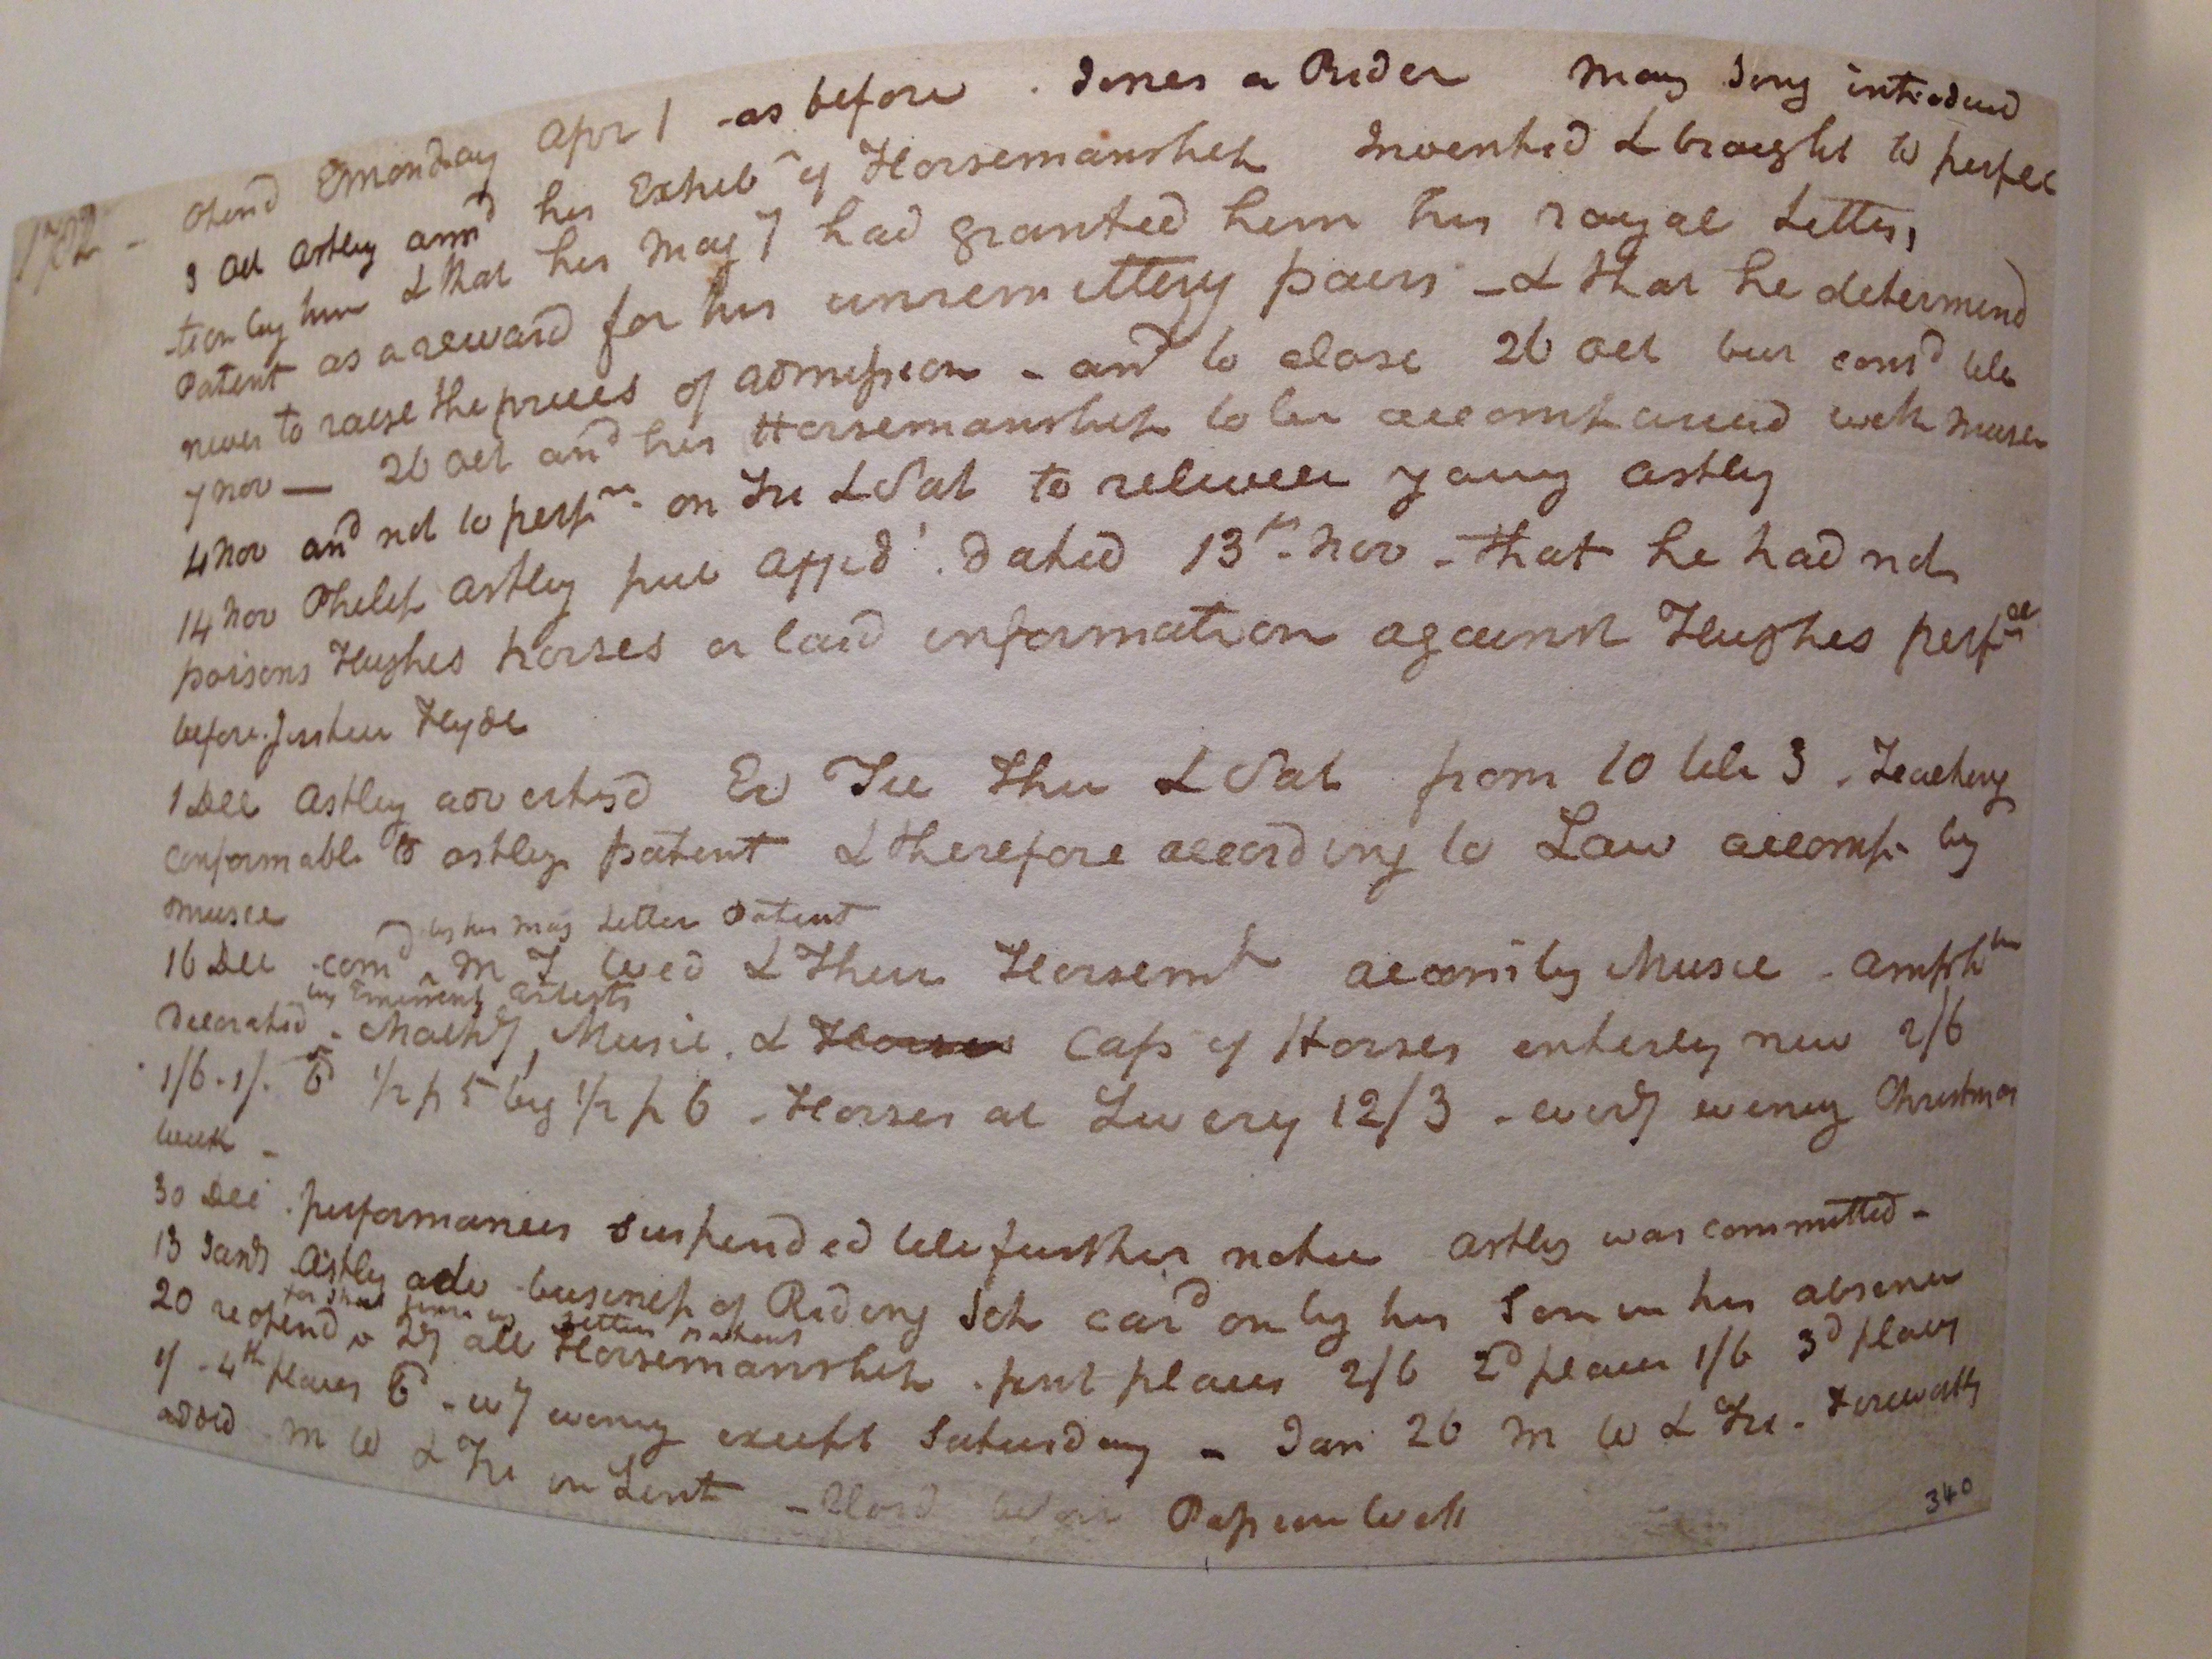 1782 - Opend EMonday Apr 1 - as before . Jones a Rider many Song introduced
3 Oct Astley annd his Exhibn of Horsemanship Invented & brought to perfec
-tion by him & that his Majy had granted him his royal Letters
Patent as a reward for his unremitting pains - & that he determind
never to raise the prices of admission - and to close 26 Oct but contd till
7 Nov — 26 Oct and his Horsemanship to be accompanied with Music
4 Nov and not to perfm on Fri & Sat to relieve young Astley
14 Nov Philip Astley put affidt. dated 13th Nov - that he had not
poisond Hughes horses or laid information against Hughes perfce
before Justice Hyde
1 Dec Astley advertisd Ev Tue Thu & Sat from 10 till 3 - Teaching
conformable to Astleys patent & therefore according to Law accomp. by
Music
by his Maj Letter Patent
16 Dec comd M T Wed & Thur Horsemp accomp by Music - Amphre
by Eminent Artists
Decorated - Machy, Music, & Horses Caps of Horses entirely new 2/6
1/6 . 1/. 6d 1/2 p 5 beg 1/2 p 6 - Horses at Livery 12/3 - every evening Christmas
week -
30 Dec . performances suspended till further notice Astley was committed -
13 Jany Astley adv business of Riding Sch card on by his Son in his absence
for short time by Letters Patent
20 reopend all Horsemanship . first places 2/6 2d places 1/6 3d places
1/ - 4th places 6d - evy evening except Saturday - Jan 26 M W & Fri - Fireworks
added M W & Fri in Lent - Closd before Passion Week
340